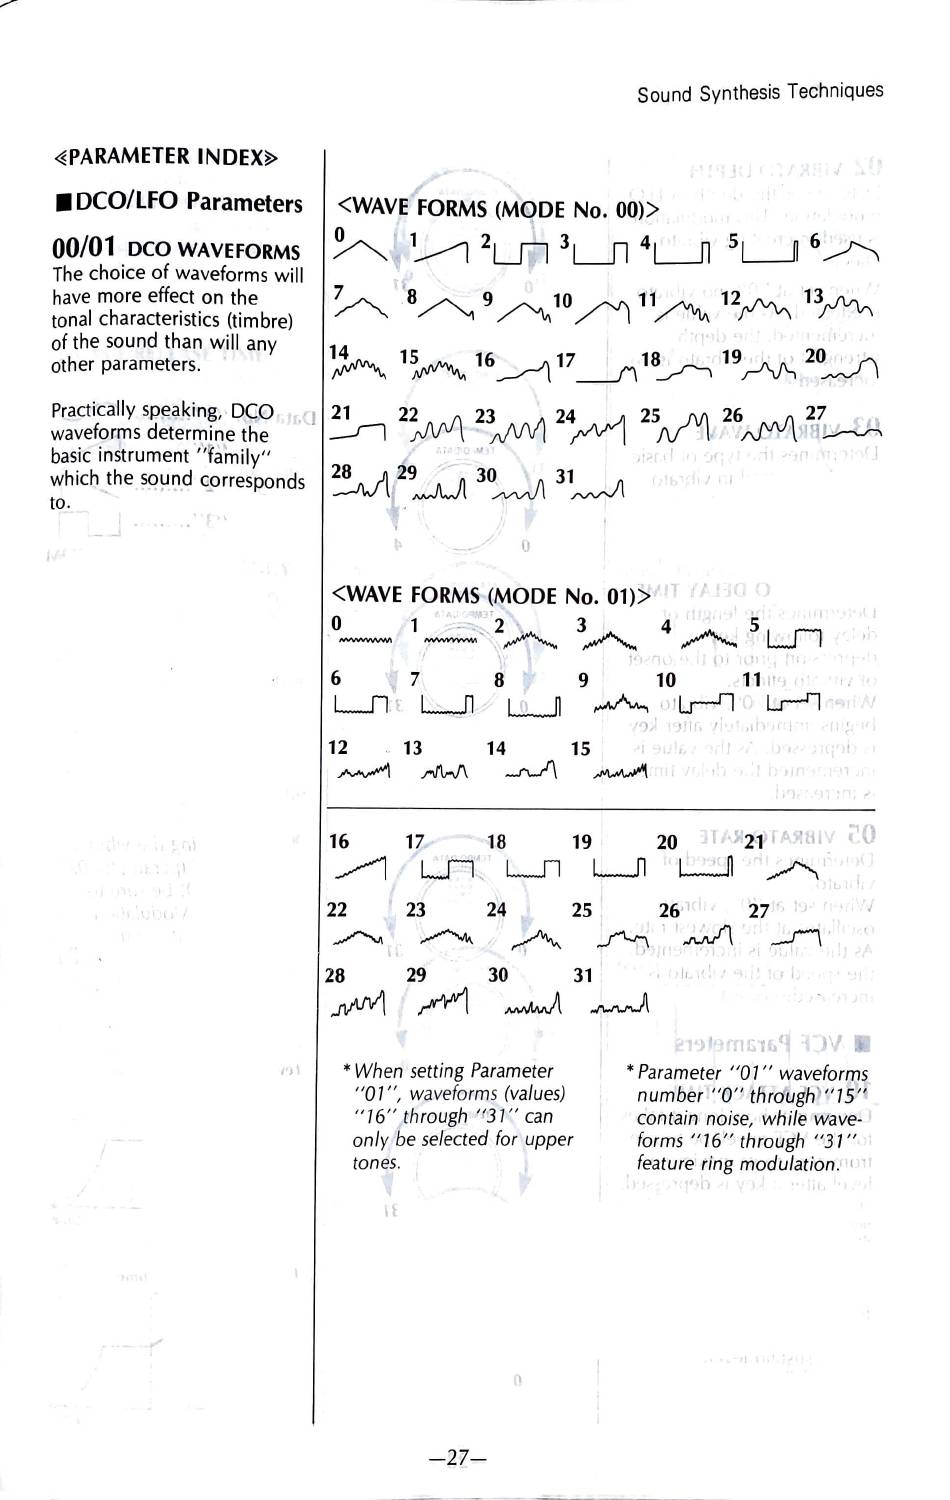 Sound Synthesis Techniques
≪PARAMETER INDEX≫
■DCO/LFO Parameters
00/01 DCO WAVEFORMS
The choice of waveforms will
have more effect on the
tonal characteristics (timbre)
of the sound than will any
other parameters.
Practically speaking, DCO
waveforms determine the
basic instrument "family"
which the sound corresponds
to.
<WAVE FORMS (MODE No. 00)>
0 1 2 3 4 5 6
7 8 9 10 11 12 13
14 15 16 17 18 19 20
21 22 23 24 25 26 27
28 29 30 31
<WAVE FORMS (MODE No. 01)>
0 1 2 3 4 5
6 7 8 9 10 11
12 13 14 15
16 17 18 19 20 21
22 23 24 25 26 27
28 29 30 31
* When setting Parameter
"01", waveforms (values)
"16" through "31" can
only be selected for upper
tones.
* Parameter "01" waveforms
number "0" through "15"
contain noise, while wave-
forms "16" through "31"
feature ring modulation.
—27—